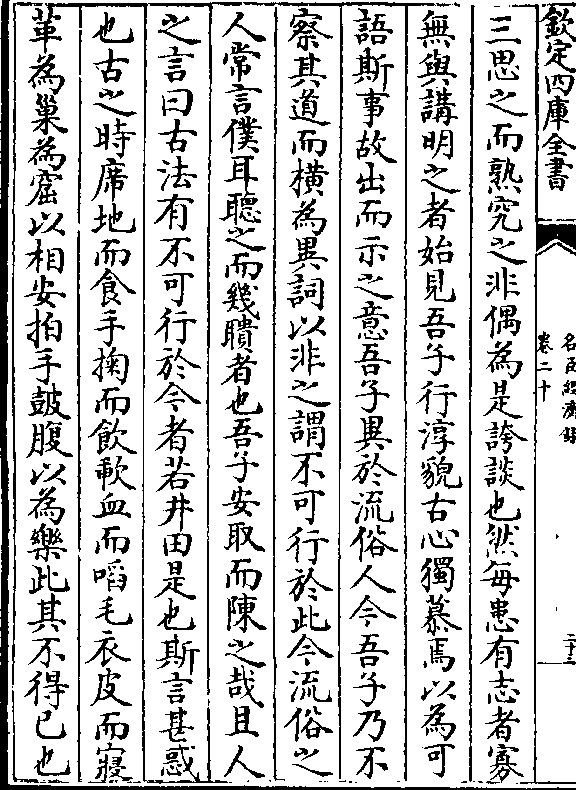 欽定四庫全書
名臣經濟錄
卷二十
二十三
三思之而熟究之非偶為是誇談也然每患有志者寡
無與講明之者始見吾子行淳貌古心獨慕焉以為可
語斯事故出而示之意吾子異於流俗人今吾子乃不
察其道而橫為異詞以非之謂不可行於此今流俗之
人常言僕耳聽之而幾聵者也吾子安取而陳之哉且人
之言曰古法有不可行於今者若井田是也斯言甚惑
也古之時席地而食手掬而飲歃血而啗毛衣皮而寢
革為巢為窟以相安拍手鼓腹以為樂此其不得已也